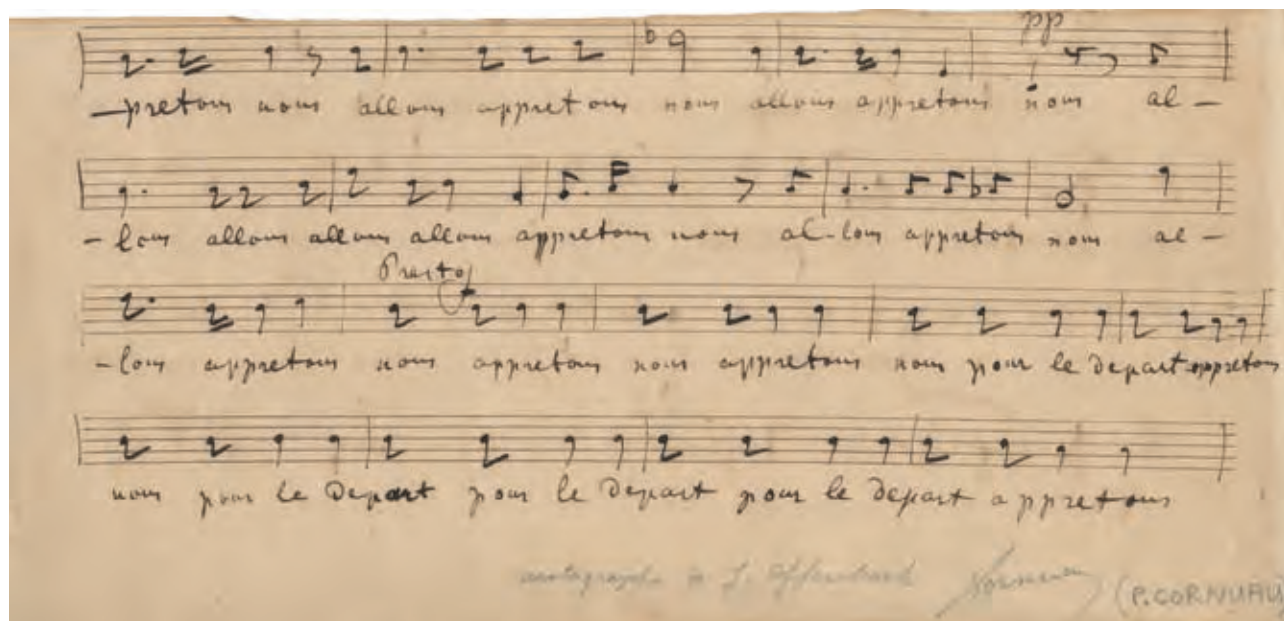 pp
-pretons nous allons appretons nous allons appretons nous al-
-lons allons allons allons appretons nous al-lons appretons nous al-
Presto
-lons appretons nous appretons nous appretons nous pour le depart appretons
nous pour le Depart pour le depart pour le depart appretons
autographe de J. Offenbach Cornuau (P. CORNUAU)